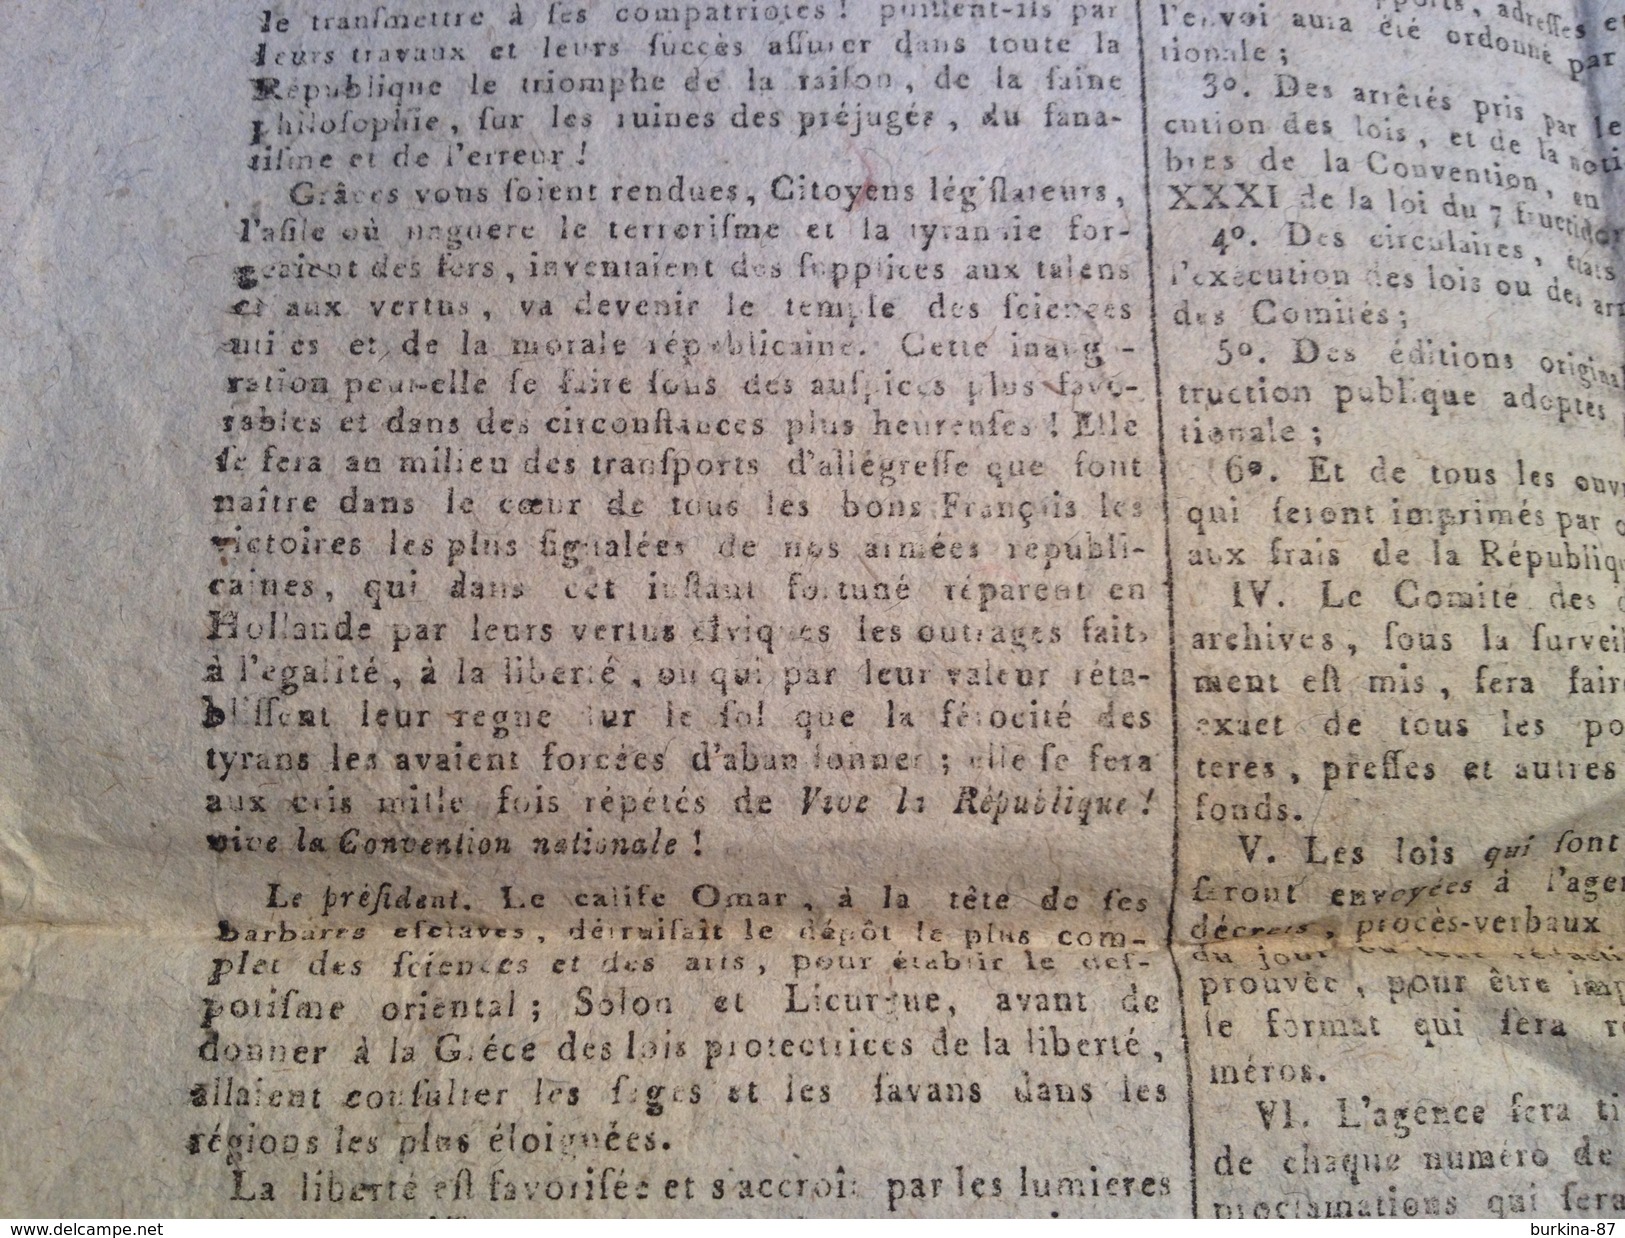 le transmettre à ses compatriotes ! puissent-ils par
leurs travaux et leurs succès assurer dans toute la
République le triomphe de la raison, de la saine
philosophie, sur les ruines des préjugés, du fana-
tisme et de l'erreur !
Grâces vous soient rendues, Citoyens législateurs,
l'asile où naguere le terrorisme et la tyrannie for-
geaient des fers, inventaient des supplices aux talens
et aux vertus, va devenir le temple des sciences
utiles et de la morale républicaine. Cette inaug -
ration peut-elle se faire sous des auspices plus favo-
rables et dans des circonstances plus heureuses ! Elle
se fera au milieu des transports d'allégresse que font
naître dans le cœur de tous les bons Français les
victoires les plus signalées de nos armées républi-
caines, qui dans cet instant fortuné réparent en
Hollande par leurs vertus civiques les outrages faits
à l'égalité, à la liberté, ou qui par leur valeur réta-
blissent leur regne sur le sol que la férocité des
tyrans les avaient forcées d'abandonner ; elle se fera
aux cris mille fois répétés de Vive la République !
vive la Convention nationale !
Le président. Le calife Omar, à la tête de ses
barbares esclaves, détruisait le dépôt le plus com-
plet des sciences et des arts, pour établir le des-
potisme oriental ; Solon et Licurgue, avant de
donner à la Gréce des lois protectrices de la liberté,
allaient consulter les sages et les savans dans les
régions les plus éloignées.
La liberté est favorisée et s'accroît par les lumieres
adresses et
l'envoi aura été ordonné par
tionale ;
3°. Des arrêtés pris par le
cution des lois, et de la noti
bres de la Convention, en
XXXI de la loi du 7 fructidor
4°. Des circulaires, états
l'exécution des lois ou des arr
des Comités ;
5°. Des éditions original
truction publique adoptés
tionale ;
6°. Et de tous les ouv
qui seront imprimés par
aux frais de la Républiq
IV. Le Comité des
archives, sous la surveil
ment est mis, sera faire
exact de tous les po
teres, presses et autres
fonds.
V. Les lois qui sont
seront envoyées à l'age
décrets, procès-verbaux
du jour
prouvée, pour être imp
le format qui sera
méros.
VI. L'agence sera ti
de chaque numéro de
proclamations qui sera
burkina-87